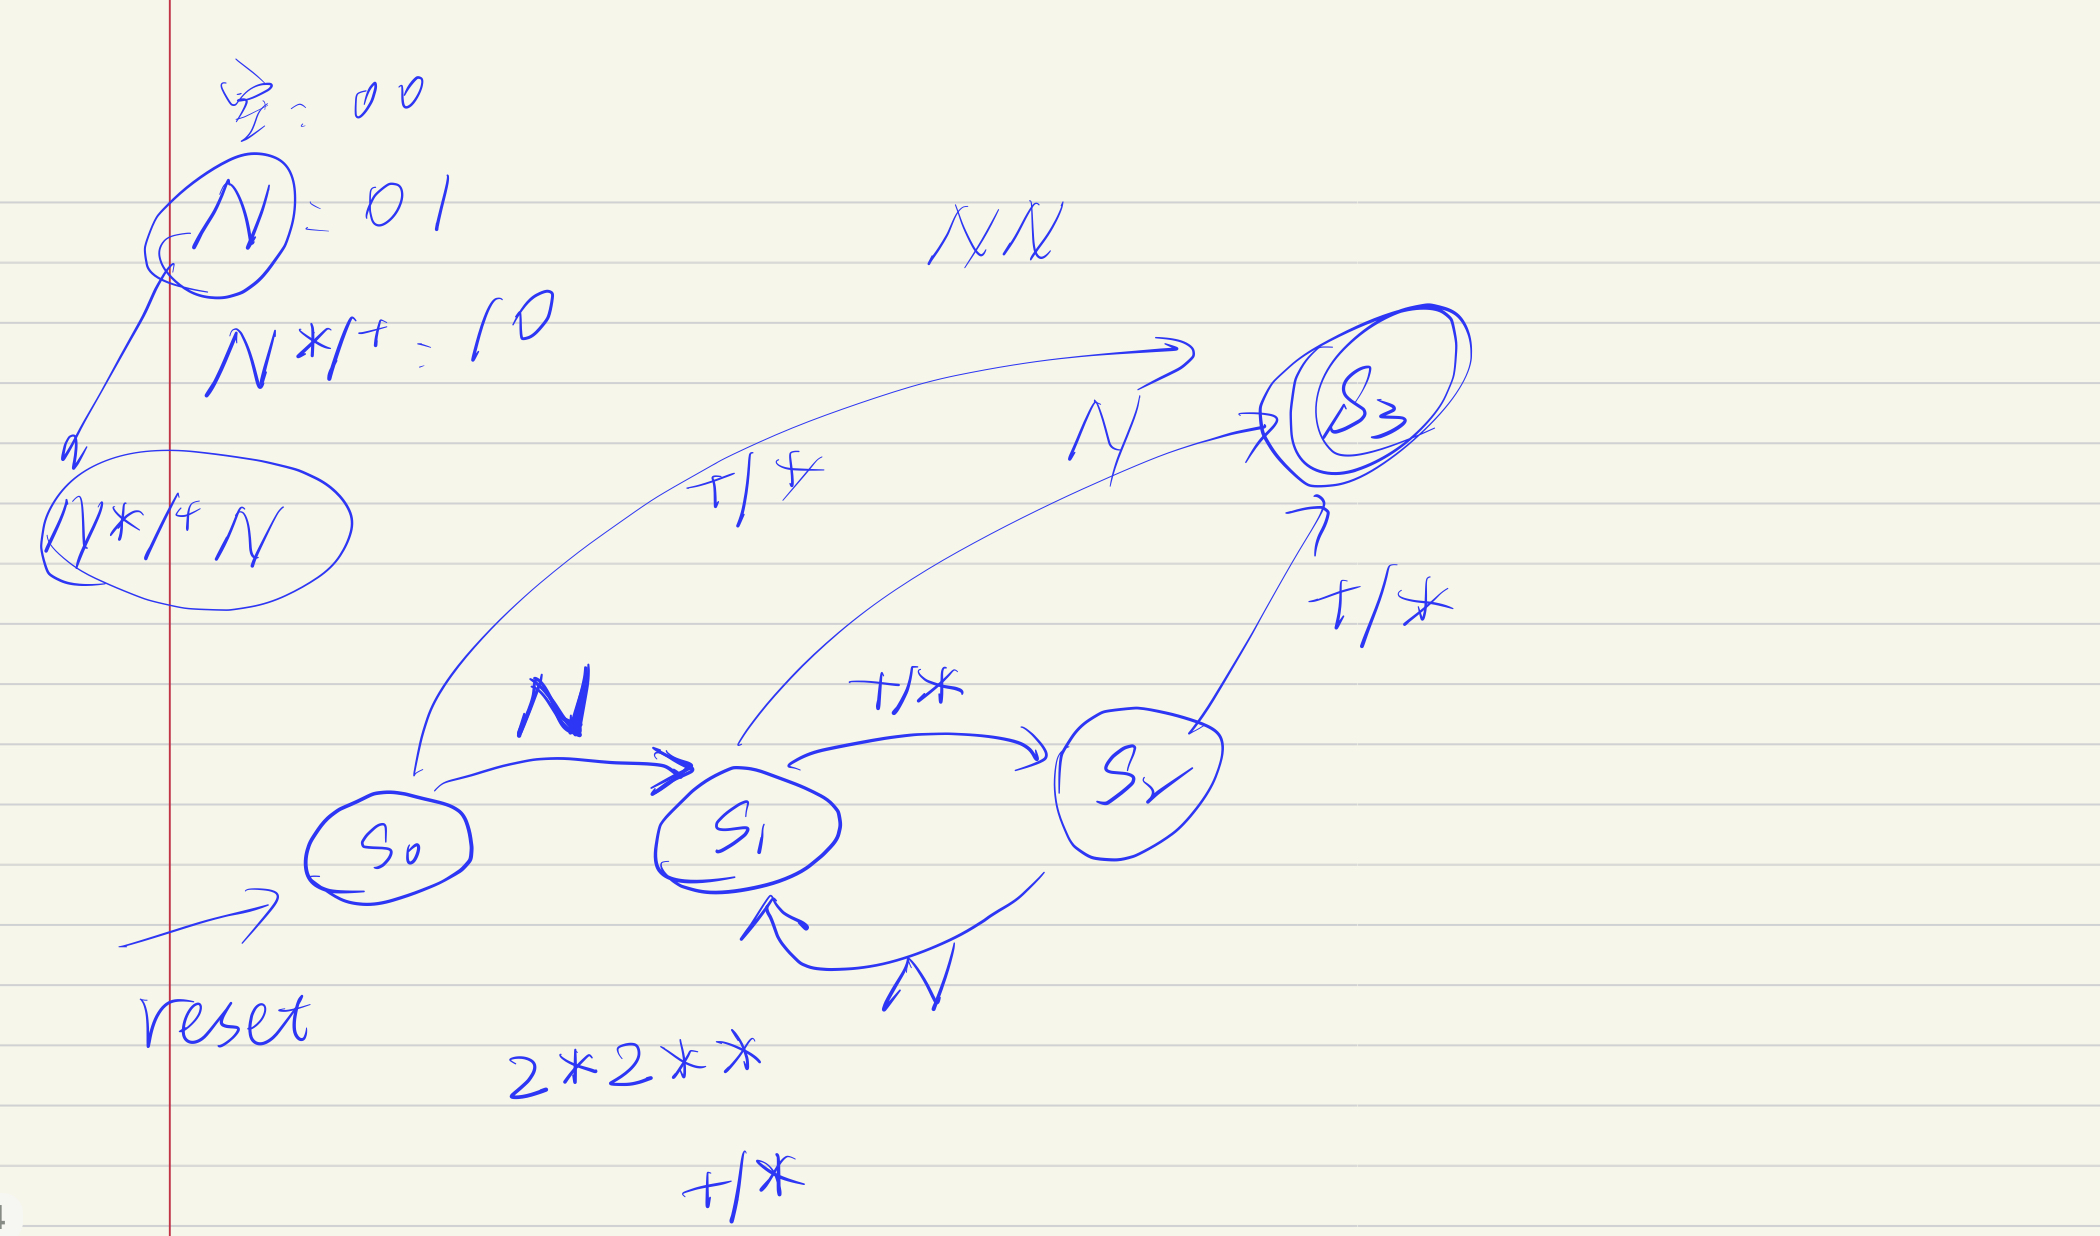 空: 00
N = 01
N*/+ = 10
N*/+ N
NN
N
+/*
S3
+/*
N
+/*
S0
S1
S2
N
reset
2*2**
+/*